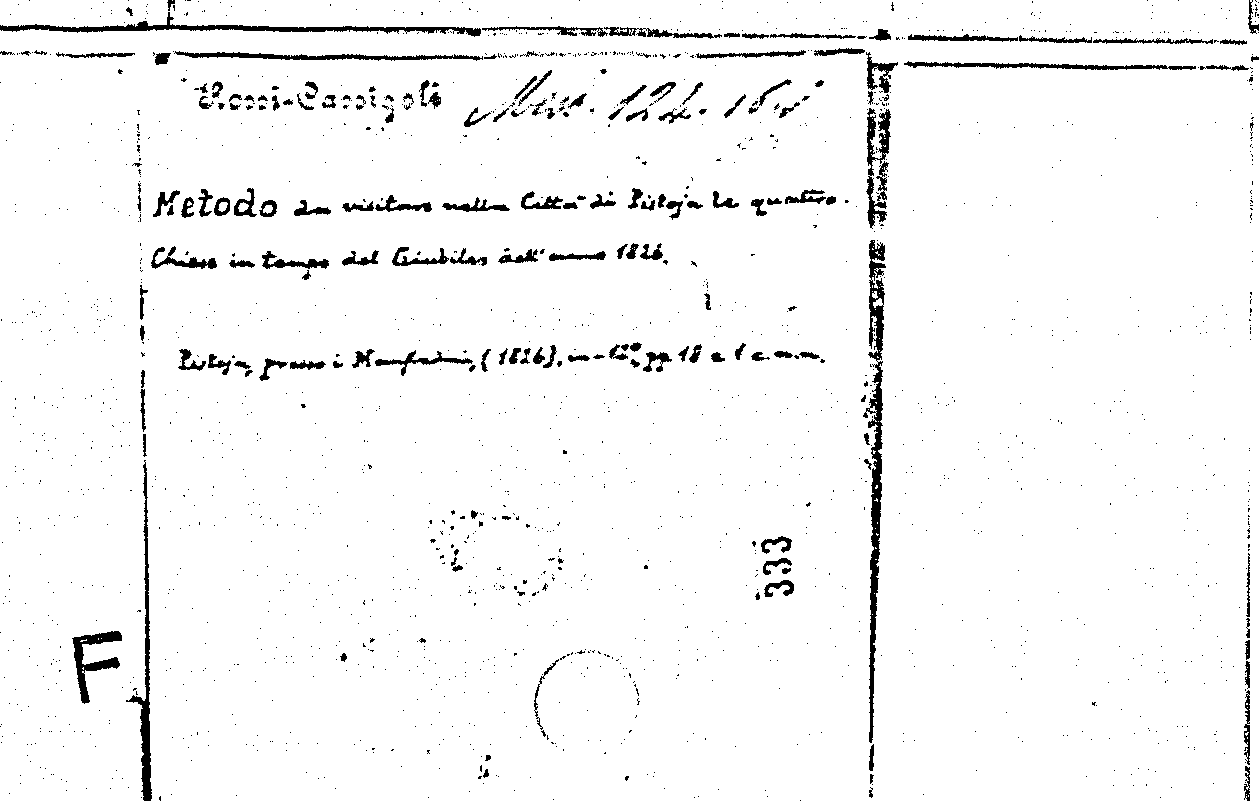 Rossi-Cassigoli Misc. 124. 16
Metodo da visitare nella Città di Pistoja le quattro
Chiese in tempo del Giubileo dell'anno 1826.
Pistoja, presso i Manfredini, (1826), in-12º, pp. 18 e 1 c. n. n.
333
F